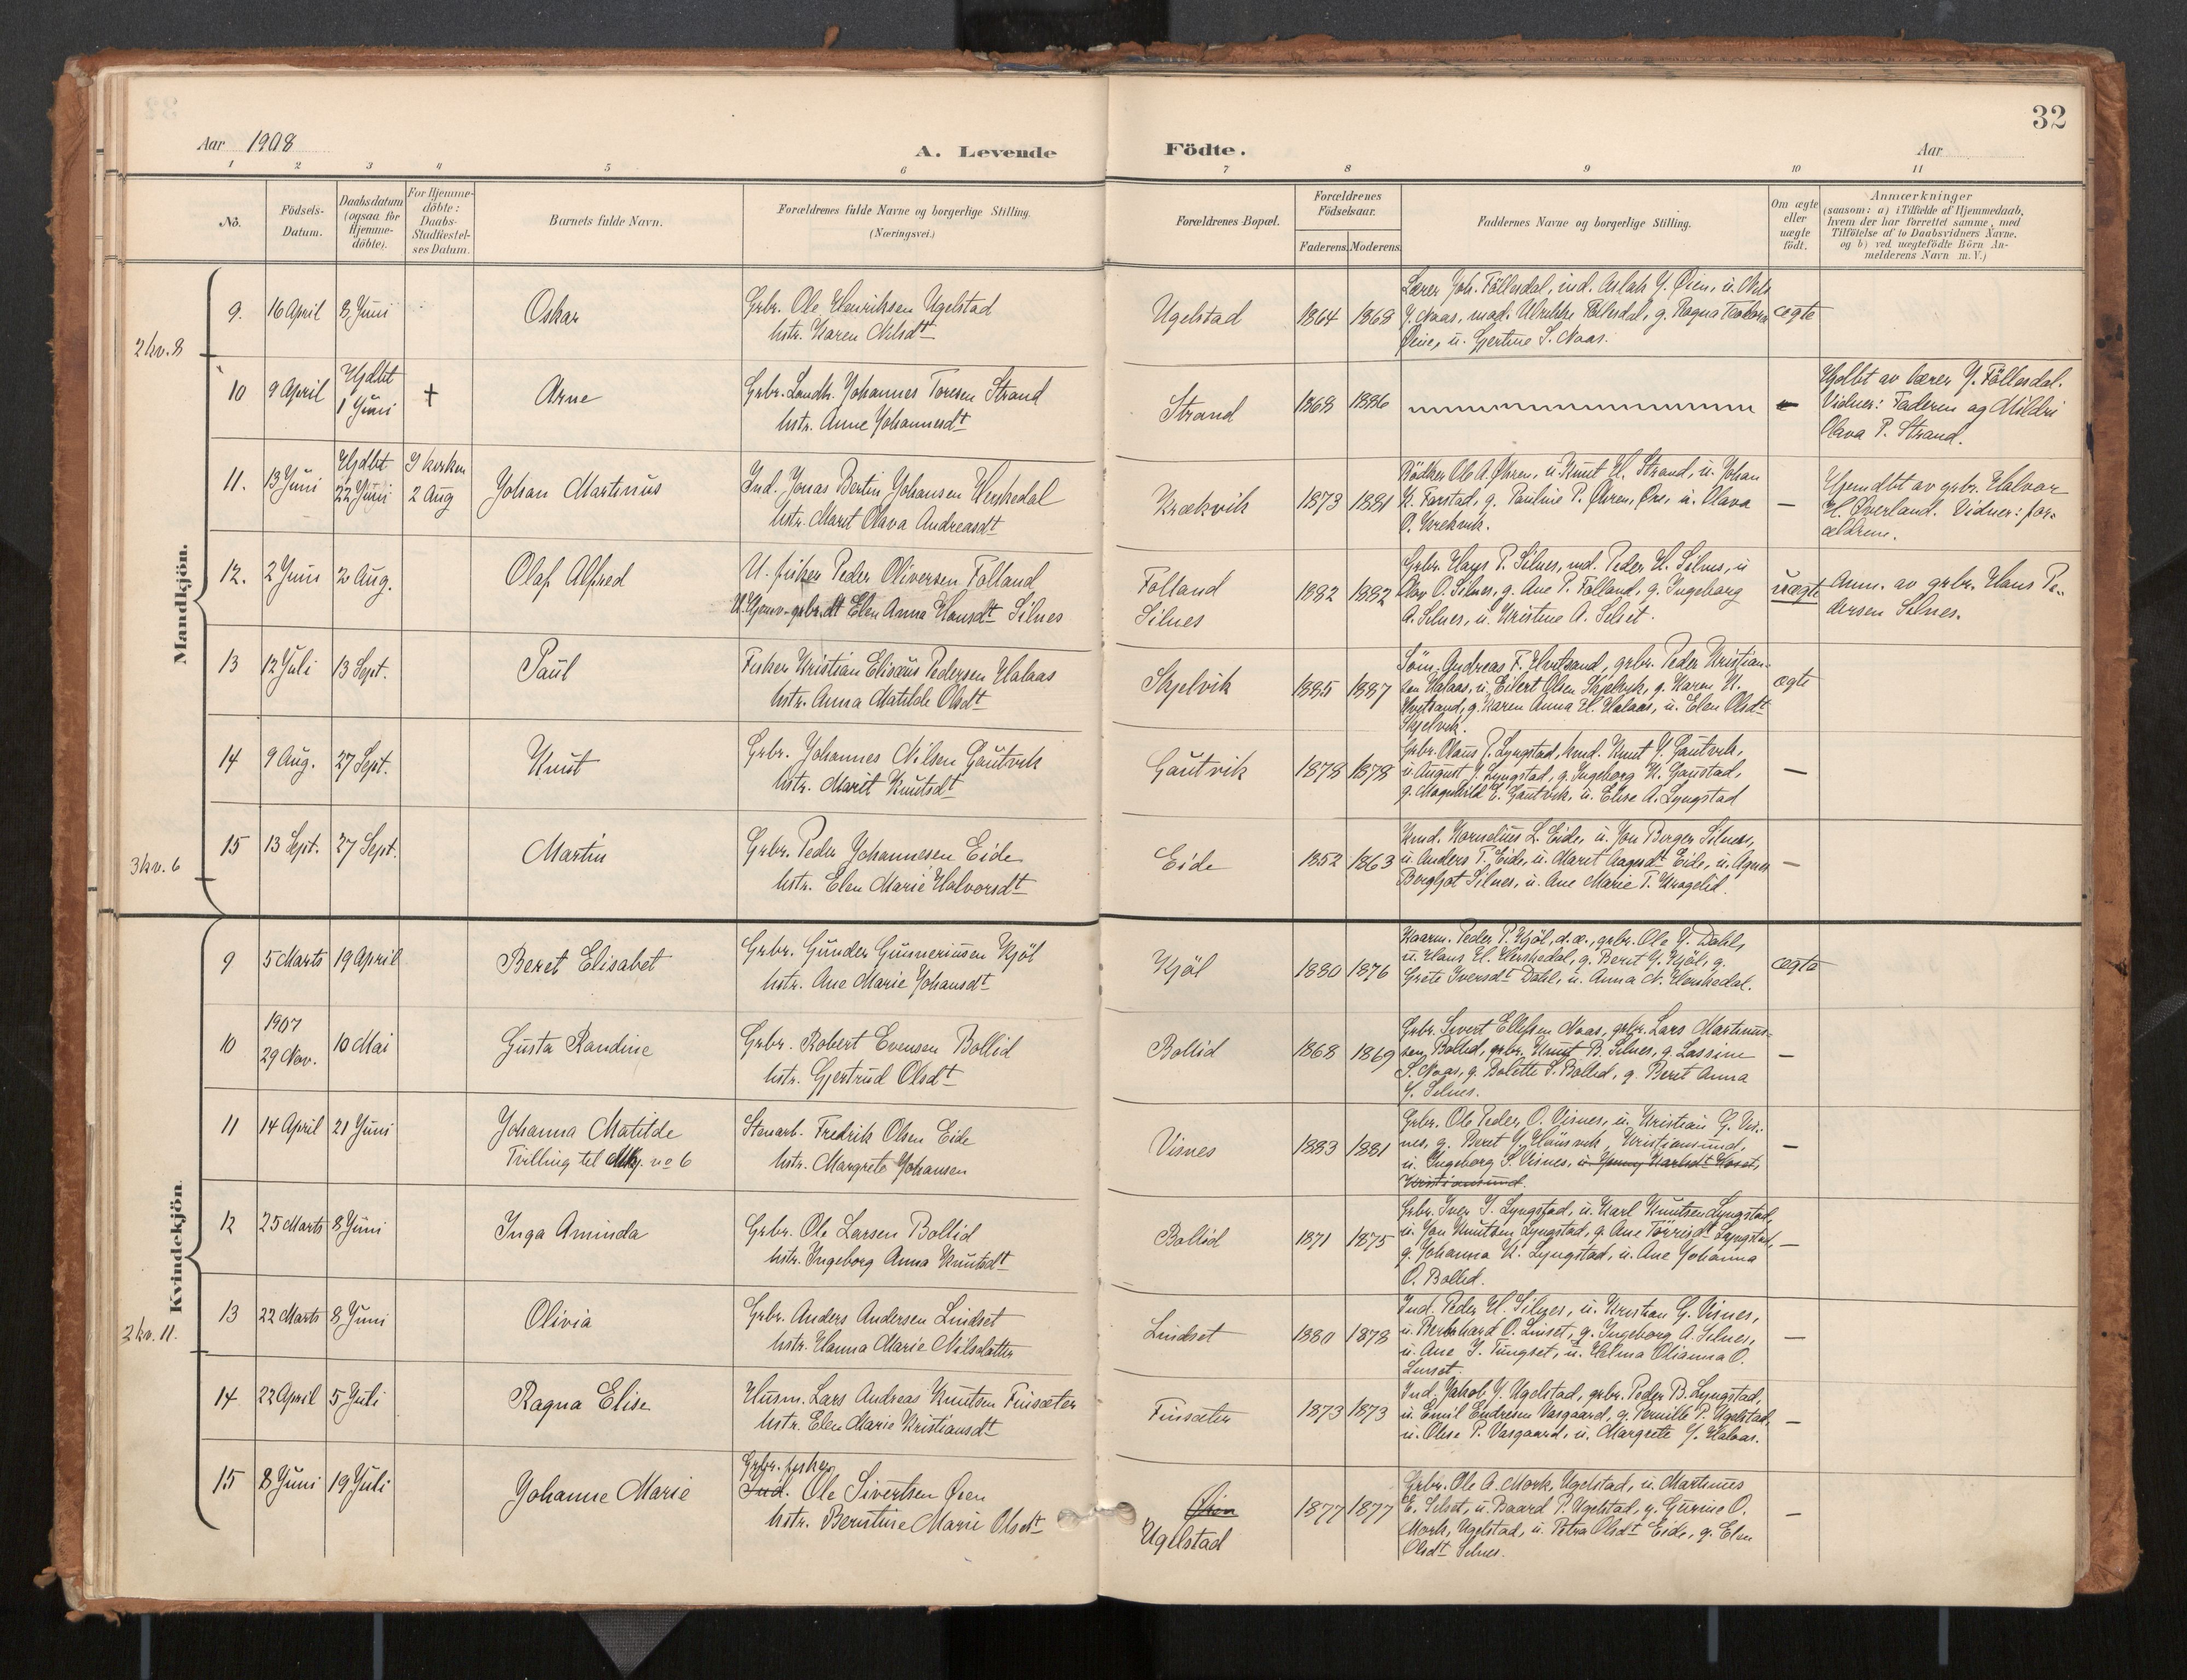 32
Aar 1908
A. Levende Födte.
Aar
1 2 3 4 5 6 7 8 9 10 11
No.
Födsels-Datum.
Daabsdatum (ogsaa for Hjemme-döbte).
For Hjemme-döbte: Daabs-Stadfæstel-ses Datum.
Barnets fulde Navn.
Forældrenes fulde Navne og borgerlige Stilling.
(Næringsvei.)
Forældrenes Bopæl.
Forældrenes Födselsaar.
Faderens. Moderens.
Faddernes Navne og borgerlige Stilling.
Om ægte eller uægte födt.
Anmærkninger
(saasom: a) i Tilfælde af Hjemmedaab,
hvem der har forrettet samme, med
Tilföielse af to Daabsvidners Navne,
og b) ved uægtefödte Börn An-
melderens Navn m. V.)
Mandkjön.
2 kv. 8
9. 16 April 8 Juni Oskar
Grbr. Ole Henriksen Ugelstad
hstr. Karen Nilsdt
Ugelstad 1864 1868
Lærer Joh. Föllesdal, ind. Aslak J. Øien, u. Nils
J. Naas, mad. Ulrikke Föllesdal, g. Ragna
Øien, u. Gjertine S. Naas.
ægte
10 9 April Hjdbt 1 Juni † Arne
Grbr. Landh. Johannes Toresen Strand
hstr. Anne Johannesdt
Strand 1868 1886
Hjdbt av lærer J. Föllesdal.
Vidner: Faderen og Mildri
Olava P. Strand.
11. 13 Juni Hjdbt 22 Juni I kirken 2 Aug Johan Martinus
Ind. Jonas Bertin Johansen Henshedal
hstr. Marit Olava Andreasdt
Krækvik 1873 1881
Bödker Ole A. Øhren, u. Knut H. Strand, u. Johan
K. Farstad, g. Pauline P. Øhren, u. Olava
O. Krekvik.
—
Hjemdbt av grbr. Halvor
H. Øverland. Vidner: for-
ældrene.
12. 2 Juni 2 Aug. Olaf Alfred
U. fisker Peder Oliversen Folland
U. Hjemv. grbr.dt Elen Anna Hansdt Silnes
Folland
Silnes
1882 1882
Grbr. Hans P. Silnes, ind. Peder H. Silnes, u
Olav O. Silnes, g. Ane P. Folland, g. Ingeborg
A. Silnes, u. Kristine A. Selset.
uægte
Anm. av grbr. Hans Pe-
dersen Silnes.
13 12 Juli 13 Sept. Paul
Fisker Kristian Elisæus Pedersen Halaas
hstr. Anna Matilde Olsdt
Skjelvik 1885 1887
Söm. Andreas F. Hvitsand, grbr. Peder Kristian-
sen Halaas, u. Eilert Olsen Skjelvik, g. Karen K.
Hvitsand, g. Karen Anna H. Halaas, u. Elen Olsdt
Skjelvik.
ægte
14 9 Aug. 27 Sept. Knut
Grbr. Johannes Nilsen Gautvik
hstr. Marit Knutsdt
Gautvik 1878 1878
Grbr. Olaus P. Lyngstad, kmd. Knut J. Gautvik,
u. August J. Lyngstad, g. Ingeborg K. Gaustad,
g. Magnhild E. Gautvik, u. Elise A. Lyngstad
—
15 13 Sept. 27 Sept. Martin
Grbr. Peder Johannesen Eide
hstr. Elen Marie Halvorsdt
Eide 1852 1863
Kmd. Kornelius L. Eide, u. Jon Berger Silnes,
u. Anders T. Eide, u. Marit Aagesdt Eide, u. Agnes
Bergljot Silnes, u. Ane Marie T. Kragelid.
—
3 kv. 6
Kvindekjön.
9 5 Marts 19 April Beret Elisabet
Grbr. Gunder Gunneriusen Kjöl
hstr. Ane Marie Johansdt
Kjöl 1880 1876
Kaarm. Peder P. Kjöl, d.æ., grbr. Ole J. Dahl,
u. Hans H. Henshedal, g. Berit J. Kjöl, g.
Grete Iversdt Dahl, u. Anna N. Henshedal.
ægte
10 1907 29 Nov. 10 Mai Gusta Randine
Grbr. Robert Evensen Bollid
hstr. Gjertrud Olsdt
Bollid 1868 1869
Grbr. Sivert Ellefsen Naas, grbr. Lars Martinus-
sen Bollid, grbr. Knut B. Silnes, g. Lassine
S. Naas, g. Bolette S. Bollid, g. Beret Anna
J. Silnes.
—
11 14 April 21 Juni Johanna Matilde
Tvilling til Mkj. no 6
Stenarb. Fredrik Olsen Eide
hstr. Margrete Johansen
Visnes 1883 1881
Grbr. Ole Peder O. Visnes, u. Kristian G. Vis-
nes, g. Beret J. Hausvik, Kristiansund,
u. Ingeborg S. Visnes, u. Jenny Karlsdt Hoset,
Kristiansund.
—
12 25 Marts 8 Juni Inga Aminda
Grbr. Ole Larsen Bollid
hstr. Ingeborg Anna Knutsdt
Bollid 1871 1875
Grbr. Iver I. Lyngstad, u. Karl Knutsen Lyngstad,
u. Jon Knutsen Lyngstad, g. Ane Törrisdt Lyngstad,
g. Johanna K. Lyngstad, u. Ane Johanna
O. Bollid.
—
2 kv. 11.
13 22 Marts 8 Juni Olivia
Grbr. Anders Andersen Lindset
hstr. Hanna Marie Nilsdatter
Lindset 1880 1878
Ind. Peder H. Silnes, u. Kristian G. Visnes,
u. Bernhard O. Linset, g. Ingeborg A. Silnes,
u. Ane J. Tungset, u. Helma Olianna O.
Linset.
—
14 22 April 5 Juli Ragna Elise
Husm. Lars Andreas Knutsen Finsæter
hstr. Elen Marie Kristiansdt
Finsæter 1873 1873
Ind. Jakob J. Ugelstad, grbr. Peder B. Lyngstad,
u. Emil Endresen Vasgaard, g. Pernille P. Ugelstad,
u. Olise P. Vasgaard, u. Margrete J. Halaas.
—
15 8 Juni 19 Juli Johanne Marie
Grbr. fisker
Ind. Ole Sivertsen Øien
hstr. Berntine Marie Olsdt
Øien
Ugelstad
1877 1877
Grbr. Ole A. Mork, Ugelstad, u. Martinus
E. Selset, u. Baard P. Ugelstad, g. Gurine O.
Mork, Ugelstad, u. Petra Olsdt Eide, g. Elen
Olsdt Silnes.
—